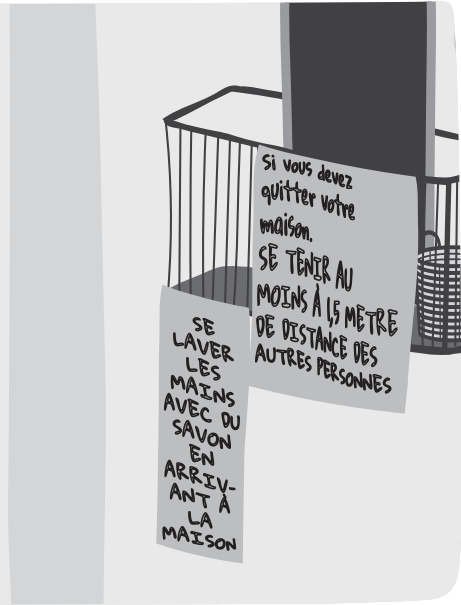 Si vous devez
quitter votre
maison.
SE TENIR AU
MOINS À 1,5 METRE
DE DISTANCE DES
AUTRES PERSONNES
SE
LAVER
LES
MAINS
AVEC DU
SAVON
EN
ARRIV-
ANT À
LA
MAISON